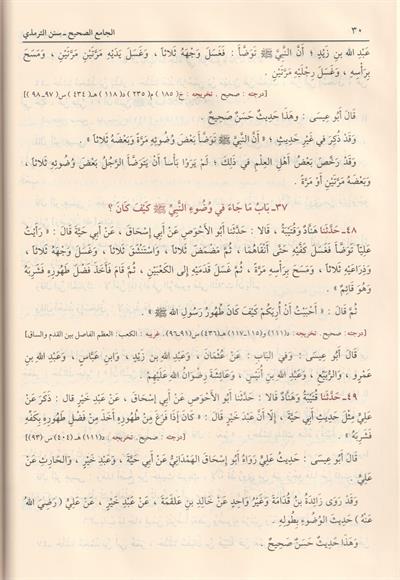 ٣٠ الجامع الصحيح ـ سنن الترمذي
عَبْدِ اللهِ بنِ زَيْدٍ ؛ أَنَّ النَّبِيَّ ﷺ تَوَضَّأَ : فَغَسَلَ وَجْهَهُ ثَلَاثاً ، وَغَسَلَ يَدَيْهِ مَرَّتَيْنِ مَرَّتَيْنِ ، وَمَسَحَ
بِرَأْسِهِ ، وَغَسَلَ رِجْلَيْهِ مَرَّتَيْنِ
[درجته : صحيح . تخريجه : خ(١٨٥) م(٢٣٥) د(١١٨) هـ(٤٣٤) س(٩٧ـ٩٨)]
قَالَ أَبو عِيسَى : وَهَذَا حَدِيثٌ حَسَنٌ صَحِيحٌ .
وَقَدْ ذُكِرَ فِي غَيْرِ حَدِيثٍ ؛ « أَنَّ النَّبِيَّ ﷺ تَوَضَّأَ بَعْضَ وُضُوئِهِ مَرَّةً وَبَعْضَهُ ثَلَاثاً » .
وَقَدْ رَخَّصَ بَعْضُ أَهْلِ العِلْمِ فِي ذَلِكَ ؛ لَمْ يَرَوْا بَأْساً أَنْ يَتَوَضَّأَ الرَّجُلُ بَعْضَ وُضُوئِهِ ثَلَاثاً ،
وَبَعْضَهُ مَرَّتَيْنِ أَوْ مَرَّةً .
٣٧ـ بَابُ مَا جَاءَ فِي وُضُوءِ النَّبِيِّ ﷺ كَيْفَ كَانَ ؟
٤٨ـ حَدَّثَنَا هَنَّادٌ وَقُتَيْبَةُ ، قَالَا : حَدَّثَنَا أَبُو الأَحْوَصِ عَنْ أَبِي إِسْحَاقَ ، عَنْ أَبِي حَيَّةَ قَالَ : « رَأَيْتُ
عَلِيًّا تَوَضَّأَ فَغَسَلَ كَفَّيْهِ حَتَّى أَنْقَاهُمَا ، ثُمَّ مَضْمَضَ ثَلَاثاً ، وَاسْتَنْشَقَ ثَلَاثاً ، وَغَسَلَ وَجْهَهُ ثَلَاثاً ،
وَذِرَاعَيْهِ ثَلَاثاً ، وَمَسَحَ بِرَأْسِهِ مَرَّةً ، ثُمَّ غَسَلَ قَدَمَيْهِ إِلَى الكَعْبَيْنِ ، ثُمَّ قَامَ فَأَخَذَ فَضْلَ طَهُورِهِ فَشَرِبَهُ
وَهُوَ قَائِمٌ » .
ثُمَّ قَالَ : « أَحْبَبْتُ أَنْ أُرِيَكُمْ كَيْفَ كَانَ طُهُورُ رَسُولِ اللهِ ﷺ » .
[درجته : صحيح . تخريجه : د(١١١) و(١١٥ـ١١٧) هـ(٤٣٦) س(٩١ـ٩٦). غريبه : الكعب: العظم الفاصل بين القدم والساق]
قَالَ أَبُو عِيسَى : وَفِي البَابِ : عَنْ عُثْمَانَ ، وَعَبْدِ اللهِ بنِ زَيْدٍ ، وَابنِ عَبَّاسٍ ، وَعَبْدِ اللهِ بنِ
عَمْرٍو ، وَالرُّبَيِّعِ ، وَعَبْدِ اللهِ بنِ أُنَيْسٍ ، وَعَائِشَةَ رِضْوَانُ اللهِ عَلَيْهِمْ .
٤٩ـ حَدَّثَنَا قُتَيْبَةُ وَهَنَّادٌ قَالَا : حَدَّثَنَا أَبُو الأَحْوَصِ ، عَنْ أَبِي إِسْحَاقَ ، عَنْ عَبْدِ خَيْرٍ قَالَ : ذَكَرَ عَنْ
عَلِيٍّ مِثْلَ حَدِيثِ أَبِي حَيَّةَ ، إِلَّا أَنَّ عَبْدَ خَيْرٍ قَالَ : « كَانَ إِذَا فَرَغَ مِنْ طُهُورِهِ أَخَذَ مِنْ فَضْلِ طَهُورِهِ بِكَفِّهِ
فَشَرِبَهُ » [درجته : صحيح . تخريجه : د(١١١) هـ(٤٠٤) س(٩٣)]
قَالَ أَبُو عِيسَى : حَدِيثُ عَلِيٍّ رَوَاهُ أَبُو إِسْحَاقَ الهَمْدَانِيُّ عَنْ أَبِي حَيَّةَ ، وَعَبْدِ خَيْرٍ ، وَالحَارِثِ عَنْ
عَلِيٍّ .
وَقَدْ رَوَى زَائِدَةُ بنُ قُدَامَةَ وَغَيْرُ وَاحِدٍ عَنْ خَالِدِ بنِ عَلْقَمَةَ ، عَنْ عَبْدِ خَيْرٍ ، عَنْ عَلِيٍّ (رَضِيَ اللهُ
عَنْهُ ) حَدِيثَ الوُضُوءِ بِطُولِهِ .
وَهَذَا حَدِيثٌ حَسَنٌ صَحِيحٌ .